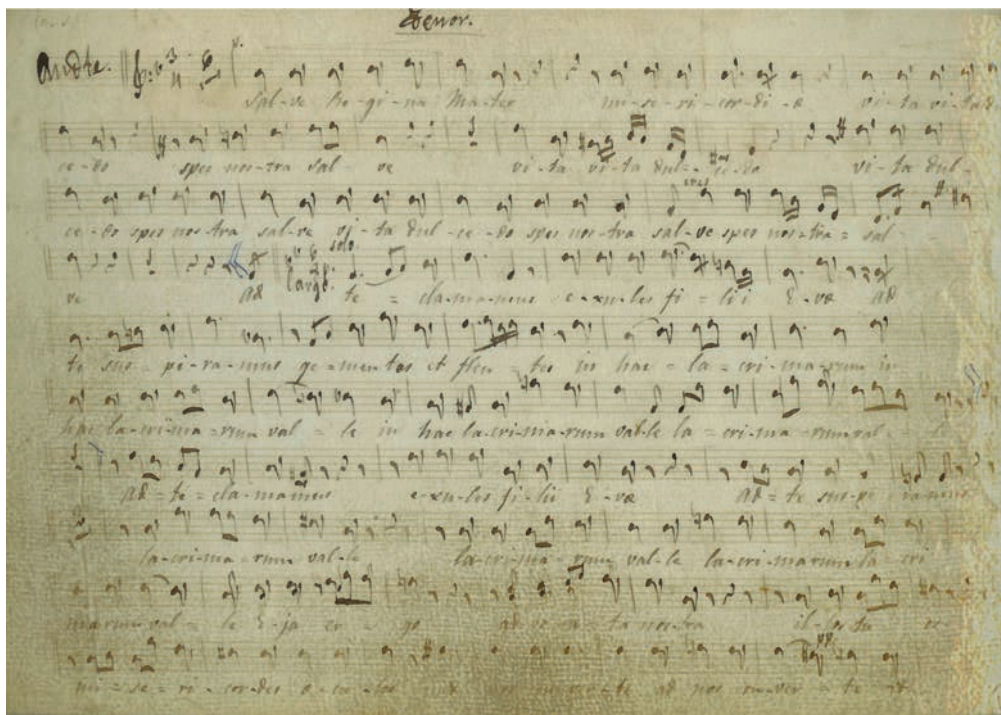 Tenor.
Andte.
Sal-ve Re-gi-na Ma-ter mi-se-ri-cor-di-æ vi-ta vi-ta d
ce-do spes nos-tra sal- ve vi-ta vi-ta dul- ce-do vi-ta dul-
ce-do spes nos-tra sal-ve vi-ta dul-ce-do spes nos-tra sal-ve spes nos-tra = sal-
solo
Largo
ve ad te = cla-ma-mus e-xu-les fi-lii E-væ ad
te sus = pi-ra-mus ge-men-tes et flen = tes in hac = la = cri-ma-rum in
hac la-cri-ma-rum val = le in hac la-cri-ma-rum val-le la = cri-ma-rum val-
ad = te = cla-ma-mus e-xu-les fi-lii E-væ ad = te sus-pi ramus
la-cri-ma-rum val-le la-cri-ma-rum val-le la-cri-marum la cri
marum val = le E-ja er = go ad-vo nos-tra il-los tu
mi = se-ri-cor-des o-cu-los ad nos